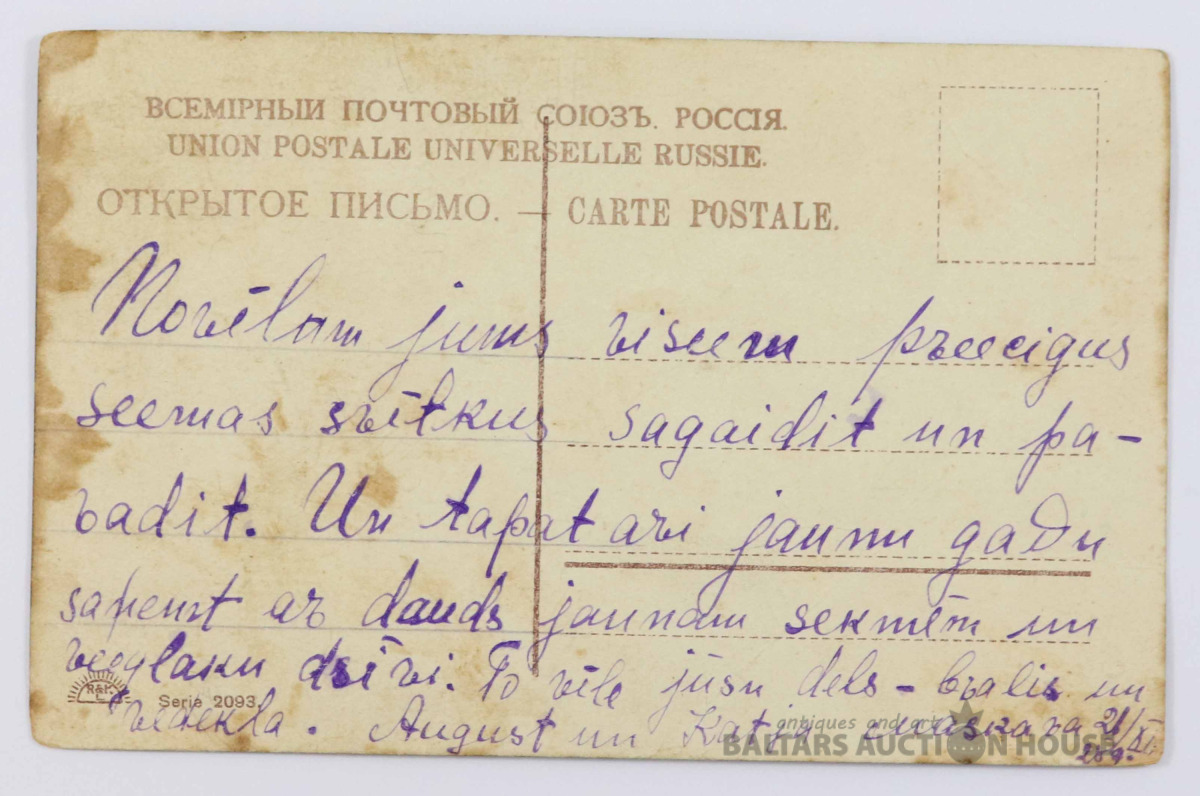 ВСЕМІРНЫИ ПОЧТОВЫЙ СОЮЗЪ. РОССІЯ.
UNION POSTALE UNIVERSELLE RUSSIE.
ОТКРЫТОЕ ПИСЬМО. — CARTE POSTALE.
Novēlam jums viseem preecigus
seemas svētkus sagaidit un pa-
vadit. Un tapat ari jaunu gadu
saņemt ar dauds jaunam sekmēm un
veeglaku dsīvi. To vēle jūsu dels - bralis un
vedekla. August un Katja
R&K. L.
Serie 2093.
antiques and art
BALTARS AUCTION HOUSE